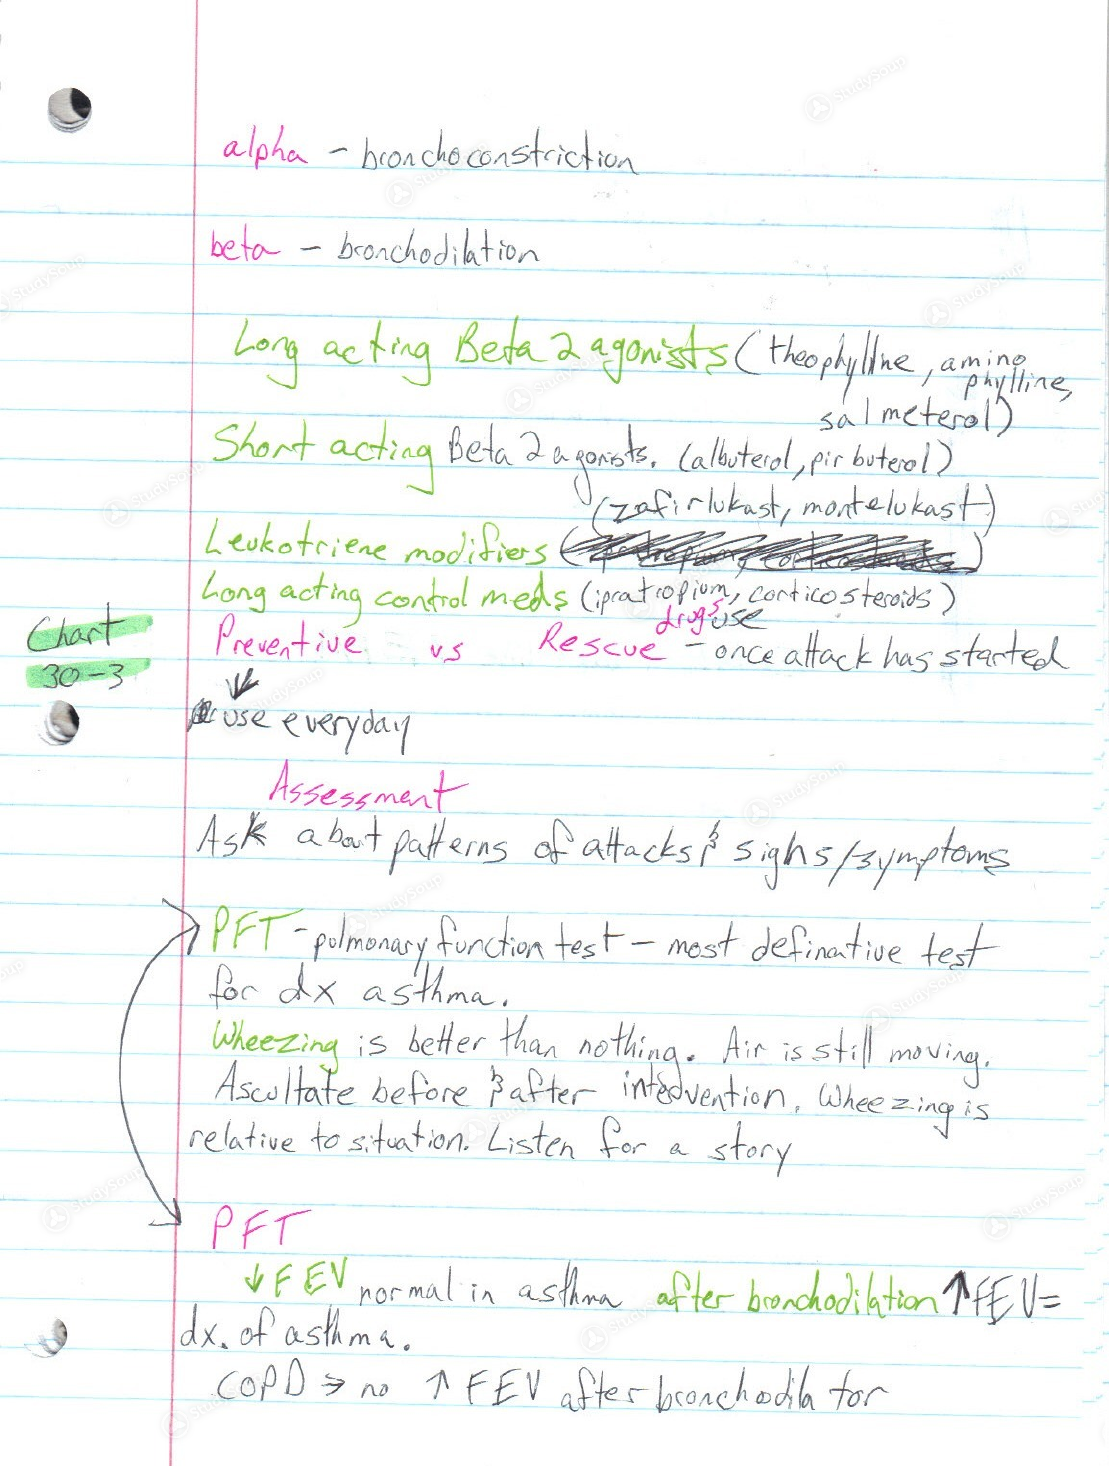 alpha - bronchoconstriction
beta - bronchodilation
Long acting Beta 2 agonists (theophylline, amino
phylline,
salmeterol)
Short acting Beta 2 agonists. (albuterol, pirbuterol)
(zafirlukast, montelukast)
Leukotriene modifiers
Long acting control meds (ipratropium, corticosteroids)
drugs use
Chart Preventive vs Rescue - once attack has started
30-3
use everyday
Assessment
Ask about patterns of attacks & signs/symptoms
PFT - pulmonary function test - most definative test
for dx asthma.
Wheezing is better than nothing. Air is still moving.
Ascultate before & after intedvention. Wheezing is
relative to situation. Listen for a story
PFT
↓ FEV normal in asthma after bronchodilation ↑ FEV =
dx. of asthma.
COPD → no ↑ FEV after bronchodilator